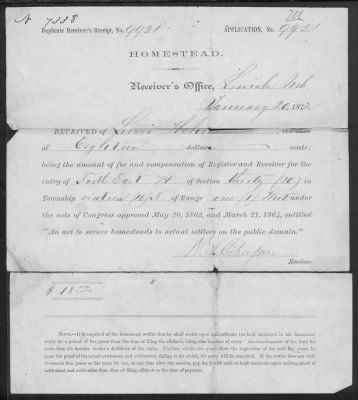 N 7338
Duplicate Receiver's Receipt, No. 9921
APPLICATION, No. 9921
HOMESTEAD.
Receiver's Office, Lincoln Neb
January 20, 187
RECEIVED of Lewis the sum
of Eighteen dollars cents;
being the amount of fee and compensation of Register and Receiver for the
entry of North East 1/4 of Section thirty (30) in
Township sixteen (16) N of Range one (1) West under
the acts of Congress approved May 20, 1862, and March 21, 1864, entitled
"An act to secure homesteads to actual settlers on the public domain."
Receiver.
$ 18.00
NOTE.—It is required of the homestead settler that he shall reside upon and cultivate the land embraced in his homestead
entry for a period of five years from the time of filing the affidavit, being also the date of entry. An abandonment of the land for
more than six months works a forfeiture of the claim. Further, within two years from the expiration of the said five years he
must file proof of his actual settlement and cultivation, failing to do which, his entry will be cancelled. If the settler does not wish
to remain five years on his tract, he can, at any time after six months, pay for it with cash or land-warrants, upon making proof of
settlement and cultivation from date of filing affidavit to the time of payment.